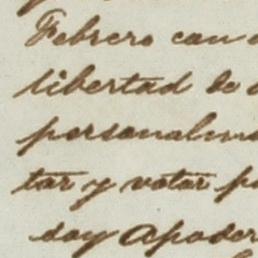 Febrero con
libertad de
personalme
tar y votar p
doy Apoder